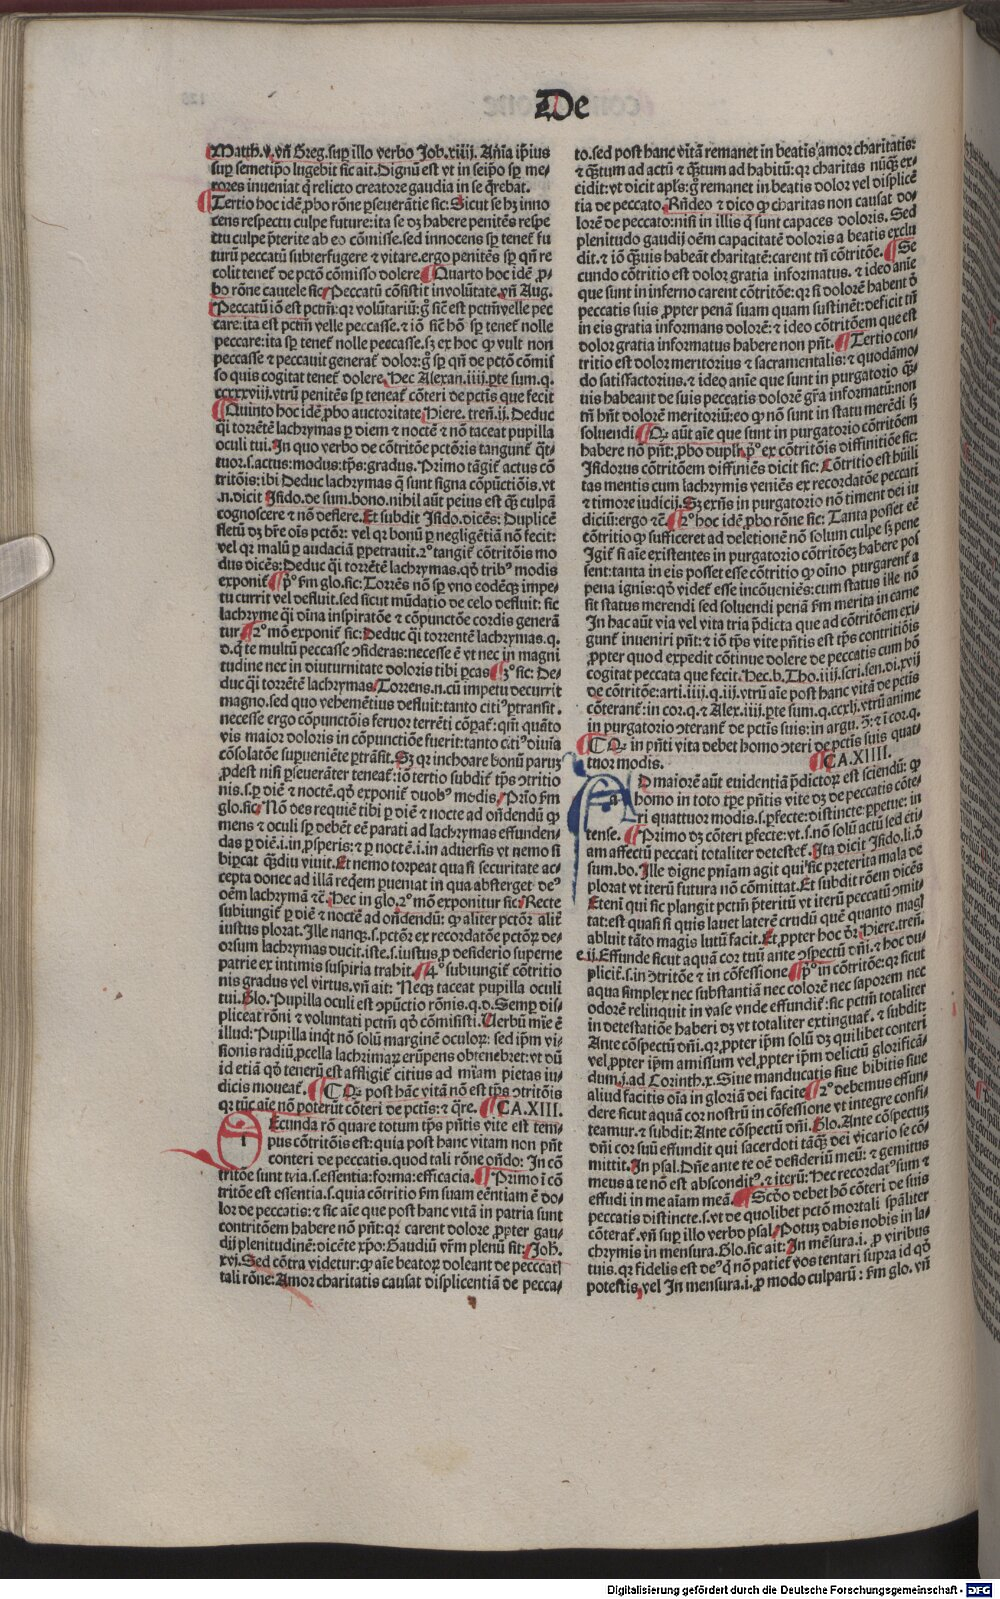 De
Matth.v.vñ Greg.sup illo verbo Job.xiiij. Aĩa ipĩus
sup semetipo lugebit sic ait. Dignũ est vt in seipo sp me-
rores inueniat q̃ relicto creatore gaudia in se q̃rebat.
Tertio hoc idẽ ꝓbo rõne ꝑseuerãtie sic: Sicut se hȝ inno
cens respectu culpe future: ita se dȝ habere penitẽs respe
ctu culpe p̃terite ab eo cõmisse. sed innocens sp tenet᷑ fu
turũ peccatũ subterfugere & vitare. ergo penitẽs sp qñ re
colit tenet᷑ de pctõ cõmisso dolere. Quarto hoc idẽ ꝓ-
bo rõne cautele sic. Peccatũ cõsistit in volũtate. vñ Aug.
Peccatũ iõ est pctm̃: qr volũtariũ: gͦ sic est pctm̃ velle pec
care: ita est pctm̃ velle peccasse. & iõ sic hõ sp tenet᷑ nolle
peccare: ita sp tenet᷑ nolle peccasse. sȝ ex hoc ꝙ vult non
peccasse & peccauit generat᷑ dolor: gͦ sp qñ de pctõ cõmis
so quis cogitat tenet᷑ dolere. Hec Alexan.iiij.pte sum.q.
ccxxxviij. vtrũ penitẽs sp teneat᷑ cõteri de pctis que fecit
Quinto hoc idẽ ꝓbo auctoritate Hiere. treñ.ij. Deduc
q̃i torrẽtẽ lachrymas ꝑ diem & noctẽ & nõ taceat pupilla
oculi tui. In quo verbo de cõtritõe pctõris tangunt᷑ q̃t-
tuor.s.actus: modus: tp̃s: gradus. Primo tãgit᷑ actus cõ
tritõis: ibi Deduc lachrymas q̃ sunt signa cõpũctiõis. vt
.n.dicit Isido.de sum.bono. nihil aũt peius est q̃ȝ culpã
cognoscere & nõ deflere. Et subdit Isido. dicẽs: Duplicẽ
fletũ dȝ hr̃e oĩs pctõr: vel qr bonũ ꝑ negligẽtiã nõ fecit:
vel qr malũ ꝑ audaciã ꝑpetrauit. 2º tangit᷑ cõtritõis mo
dus dicẽs: Deduc q̃i torrẽtẽ lachrymas. qḋ trib⁹ modis
exponit᷑ pº fm glo.sic: Torrẽs nõ sp vno eodẽqȝ impe-
tu currit vel defluit. sed sicut mũdatio de celo defluit: sic
lachryme q̃i diuina inspiratõe & cõpunctõe cordis generã
tur. 2º mõ exponit᷑ sic: Deduc q̃i torrentẽ lachrymas. q.
d. q̃ te multũ peccasse ɔsideras: necesse ẽ vt nec in magni
tudine nec in diuturnitate doloris tibi ꝑcas. 3º sic: De-
duc q̃i torrẽtẽ lachrymas. Torrens.n.cũ impetu decurrit
magno. sed quo vehemẽtius defluit: tanto citi⁹ ptransit.
necesse ergo cõpunctõis feruor terrẽti cõpat᷑: qm̃ quãto
vis maior doloris in cõpunctiõe fuerit: tanto citi⁹ diuĩa
cõsolatõe supueniẽte ptrãsit. Sȝ qr inchoare bonũ paruȝ
ꝓdest nisi ꝑseuerãter teneat᷑: iõ tertio subdit᷑ tp̃s ɔtritio
nis.s.ꝑ diẽ & noctẽ. qḋ exponit᷑ duob⁹ modis. Primo fm
glo.sic. Nõ des requiẽ tibi ꝑ diẽ & nocte ad oñdendũ ꝙ
mens & oculi sp debẽt eẽ parati ad lachrymas effunden-
das ꝑ diẽ.i.in ꝓsperis: & ꝑ noctẽ.i.in aduersis vt nemo si
bi parcat q̃diu viuit. Et nemo torpeat quasi securitate ac-
cepta donec ad illã req̃em pueniat in qua absterget de⁹
oẽm lachrymã &c. Hec in glo. 2º mõ exponitur sic: Recte
subiungit᷑ ꝑ diẽ & noctẽ ad oñdendũ: ꝙ aliter pctõr alit᷑
iustus plorat. Ille nanqȝ.s.pctõr ex recordatõe pctõȝ de-
orsum lachrymas ducit. iste.s.iustus ꝓ desiderio superne
patrie ex intimis suspiria trahit. 4º subiungit᷑ cõtritio
nis gradus vel virtus. vñ ait: Neqȝ taceat pupilla oculi
tui. Glo. Pupilla oculi est ɔpũctio rõnis. q.d. Semp dis-
pliceat rõni & voluntati pctm̃ qḋ cõmisisti. Uerbũ mie ẽ
illud: Pupilla inq̃t nõ solũ marginẽ oculoȝ: sed ipm vi-
sionis radiũ ꝓcella lachrimaȝ erũpens obtenebret: vt dũ
id etiã qḋ tenerũ est affligit᷑ citius ad miam pietas iu-
dicis moueat᷑. CQȝ post hãc vitã nõ est tp̃s ɔtritõis
qr tũc aĩe nõ poterũt cõteri de pctis: & q̃re. CA.XIII.
Secunda rõ quare totum tp̃s pñtis vite est tem-
pus cõtritõis est: quia post hanc vitam non pñt
conteri de peccatis. quod tali rõne oñdo: In cõ
tritõe sunt tria.s.essentia: forma: efficacia. Primo ĩ cõ
tritõe est essentia.s.quia cõtritio fm suam eẽntiam ẽ do-
lor de peccatis: & sic aĩe que post hanc vitã in patria sunt
contritõem habere nõ pñt: qr carent dolore ꝓpter gau-
dij plenitudinẽ: dicẽte xp̃o: Gaudiũ vr̃m plenũ sit: Joh.
xvj. Sed cõtra videtur: ꝙ aĩe beatoȝ doleant de peccatis
tali rõne: Amor charitatis causat displicentiã de pecca-
to. sed post hanc vitã remanet in beatis amor charitatis:
& q̃tum ad actũ & q̃tum ad habitũ: qr charitas nũqȝ ex-
cidit: vt dicit apl̃s: gͦ remanet in beatis dolor vel displicẽ
tia de peccato. Rñdeo & dico ꝙ charitas non causat do-
lorẽ de peccato: nisi in illis q̃ sunt capaces doloris. Sed
plenitudo gaudij oẽm capacitatẽ doloris a beatis exclu
dit. & iõ q̃uis habeãt charitatẽ: carent tñ cõtritõe. Se
cundo cõtritio est dolor gratia informatus. & ideo anie
que sunt in inferno carent cõtritõe: qr si dolorẽ habent ḋ
peccatis suis ꝓpter penã suam quam sustinẽt: deficit tñ
in eis gratia informans dolorẽ: & ideo cõtritõem que est
dolor gratia informatus habere non pñt. Tertio con-
tritio est dolor meritorius & sacramentalis: & quodãmo-
do satisfactorius. & ideo aĩe que sunt in purgatorio q̃-
uis habeant de suis peccatis dolorẽ gr̃a informatũ: non
tñ hñt dolorẽ meritoriũ: eo ꝙ nõ sunt in statu merẽdi sȝ
soluendi. Qȝ aũt aĩe que sunt in purgatorio cõtritõem
habere nõ pñt: ꝓbo duplr. pº ex cõtritõis diffinitiõe sic:
Isidorus cõtritõem diffiniẽs dicit sic: Cõtritio est hũili
tas mentis cum lachrymis veniẽs ex recordatõe peccati
& timore iudicij. Sȝ exñs in purgatorio nõ timent dei iu
diciũ: ergo &c. 2º hoc idẽ ꝓbo rõne sic: Tanta posset eẽ
cõtritio ꝙ sufficeret ad deletionẽ nõ solum culpe sȝ pene
Igit᷑ si aĩe existentes in purgatorio cõtritõeȝ habere pos
sent: tanta in eis posset esse cõtritio ꝙ oĩno purgarent᷑ a
pena ignis: qḋ videt᷑ esse incõueniẽs: cum status ille nõ
sit status merendi sed soluendi penã fm merita in carne
In hac aũt via vel vita tria p̃dicta que ad cõtritõem exi-
gunt᷑ inueniri pñt: & iõ tp̃s vite pñtis est tp̃s contritiõis
ꝓpter quod expedit cõtinue dolere de peccatis cum hõ
cogitat peccata que fecit. Hec b. Tho.iiij.scri.sen.di.xvij
de cõtritõe: arti.iiij.q.iij. vtrũ aĩe post hanc vitã de pctis
cõterant᷑: in cor.q. & Alex.iiij.pte sum.q.ccxlj. vtrũ anime
in purgatorio ɔterant᷑ de pctis suis: in argu.ɔ: & i cor.q.
CQȝ in pñti vita debet homo ɔteri de pctis suis quat
tuor modis. CA.XIIII.
AD maiorẽ aũt euidentiã p̃dictoȝ est sciendũ: ꝙ
homo in toto tpe pñtis vite dȝ de peccatis cõte-
ri quattuor modis.s.pfecte: distincte: ppetue: in
tense. Primo dȝ cõteri pfecte: vt.s.nõ solũ actũ sed eti-
am affectũ peccati totaliter detestet᷑. Ita dicit Isido.li.ḋ
sum.bo. Ille digne pñiam agit qui sic preterita mala de
plorat vt iterũ futura nõ cõmittat. Et subdit rõem dicẽs
Etenĩ qui sic plangit pctm̃ p̃teritũ vt iterũ peccatũ ɔmit-
tat: est quasi si quis lauet laterẽ crudũ quẽ quanto magis
abluit tãto magis lutũ facit. Et ꝓpter hoc dr̃ Hiere.treñ.
e.ij. Effunde sicut aquã cor tuũ ante ɔspectũ dñi. & hoc du-
plicit᷑.s.in ɔtritõe & in cõfessione. pº in cõtritõe: qr sicut
aqua simplex nec substantiã nec colorẽ nec saporem nec
odorẽ relinquit in vase vnde effundit᷑: sic pctm̃ totaliter
in detestatiõe haberi dȝ vt totaliter extinguat᷑. & subdit:
Ante cõspectũ dñi. qr ꝓpter ipm solũ dȝ quilibet conteri
vel ꝓpter ipm amissum vel ꝓpter ipm delictũ glorificã-
dum.j.ad Corinth.x. Siue manducatis siue bibitis siue
aliud facitis oĩa in gloriã dei facite. 2º debemus effun-
dere sicut aquã cor nostrũ in cõfessione vt integre confi-
teamur. & subdit: Ante cõspectũ dñi. Glo. Ante cõspectuȝ
dñi cor suũ effundit qui sacerdoti tãqȝ dei vicario se cõ-
mittit. In psal. Dñe ante te oẽ desideriũ meũ: & gemitus
meus a te nõ est abscondit⁹. & iterũ: Hec recordat⁹ sum &
effudi in me aĩam meã. Scḋo debet hõ cõteri de suis
peccatis distincte.s.vt de quolibet pctõ mortali spãliter
cõterat᷑. vñ sup illo verbo psal. Potuȝ dabis nobis in la-
chrymis in mensura. Glo. sic ait: In mẽsura.i.ꝓ viribus
tuis. qr fidelis est de⁹ q̃ nõ patiet᷑ vos tentari supra id qḋ
potestis. vel In mensura.i.ꝓ modo culparũ: fm glo. vñ
Digitalisierung gefördert durch die Deutsche Forschungsgemeinschaft - DFG